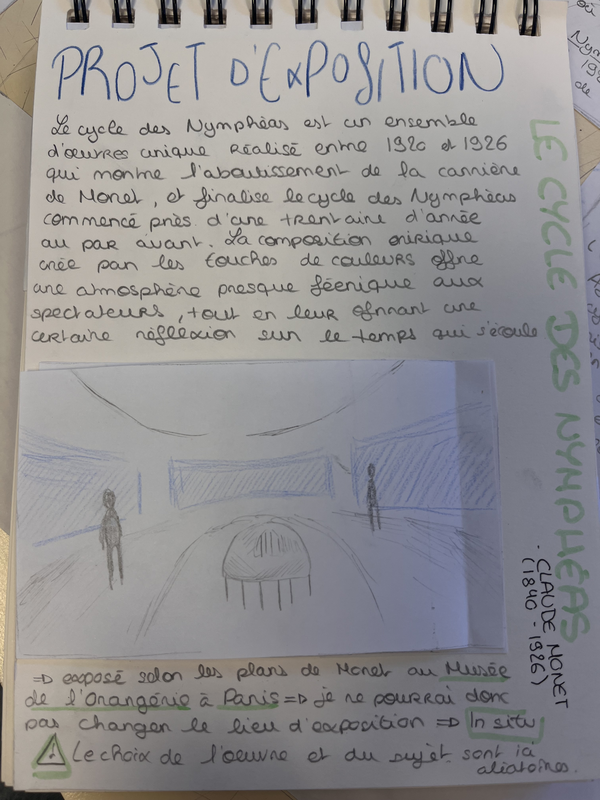 PROJET D'EXPOSITION
Le cycle des Nymphéas est un ensemble
d'oeuvres unique réalisé entre 1920 et 1926
qui montre l'aboutissement de la carrière
de Monet, et finalise le cycle des Nymphéas
commencé près d'une trentaine d'année
au par avant. La composition onirique
créé par les touches de couleurs offre
une atmosphère presque féérique aux
spectateurs, tout en leur offrant une
certaine réflexion sur le temps qui s'écoule
LE CYCLE DES NYMPHÉAS
- CLAUDE MONET
(1840 - 1926)
=D exposé selon les plans de Monet au Musée
de l'Orangerie à Paris =D je ne pourrai donc
pas changer le lieu d'exposition =D In situ
⚠ Le choix de l'oeuvre et du sujet sont ici
aliatoires.